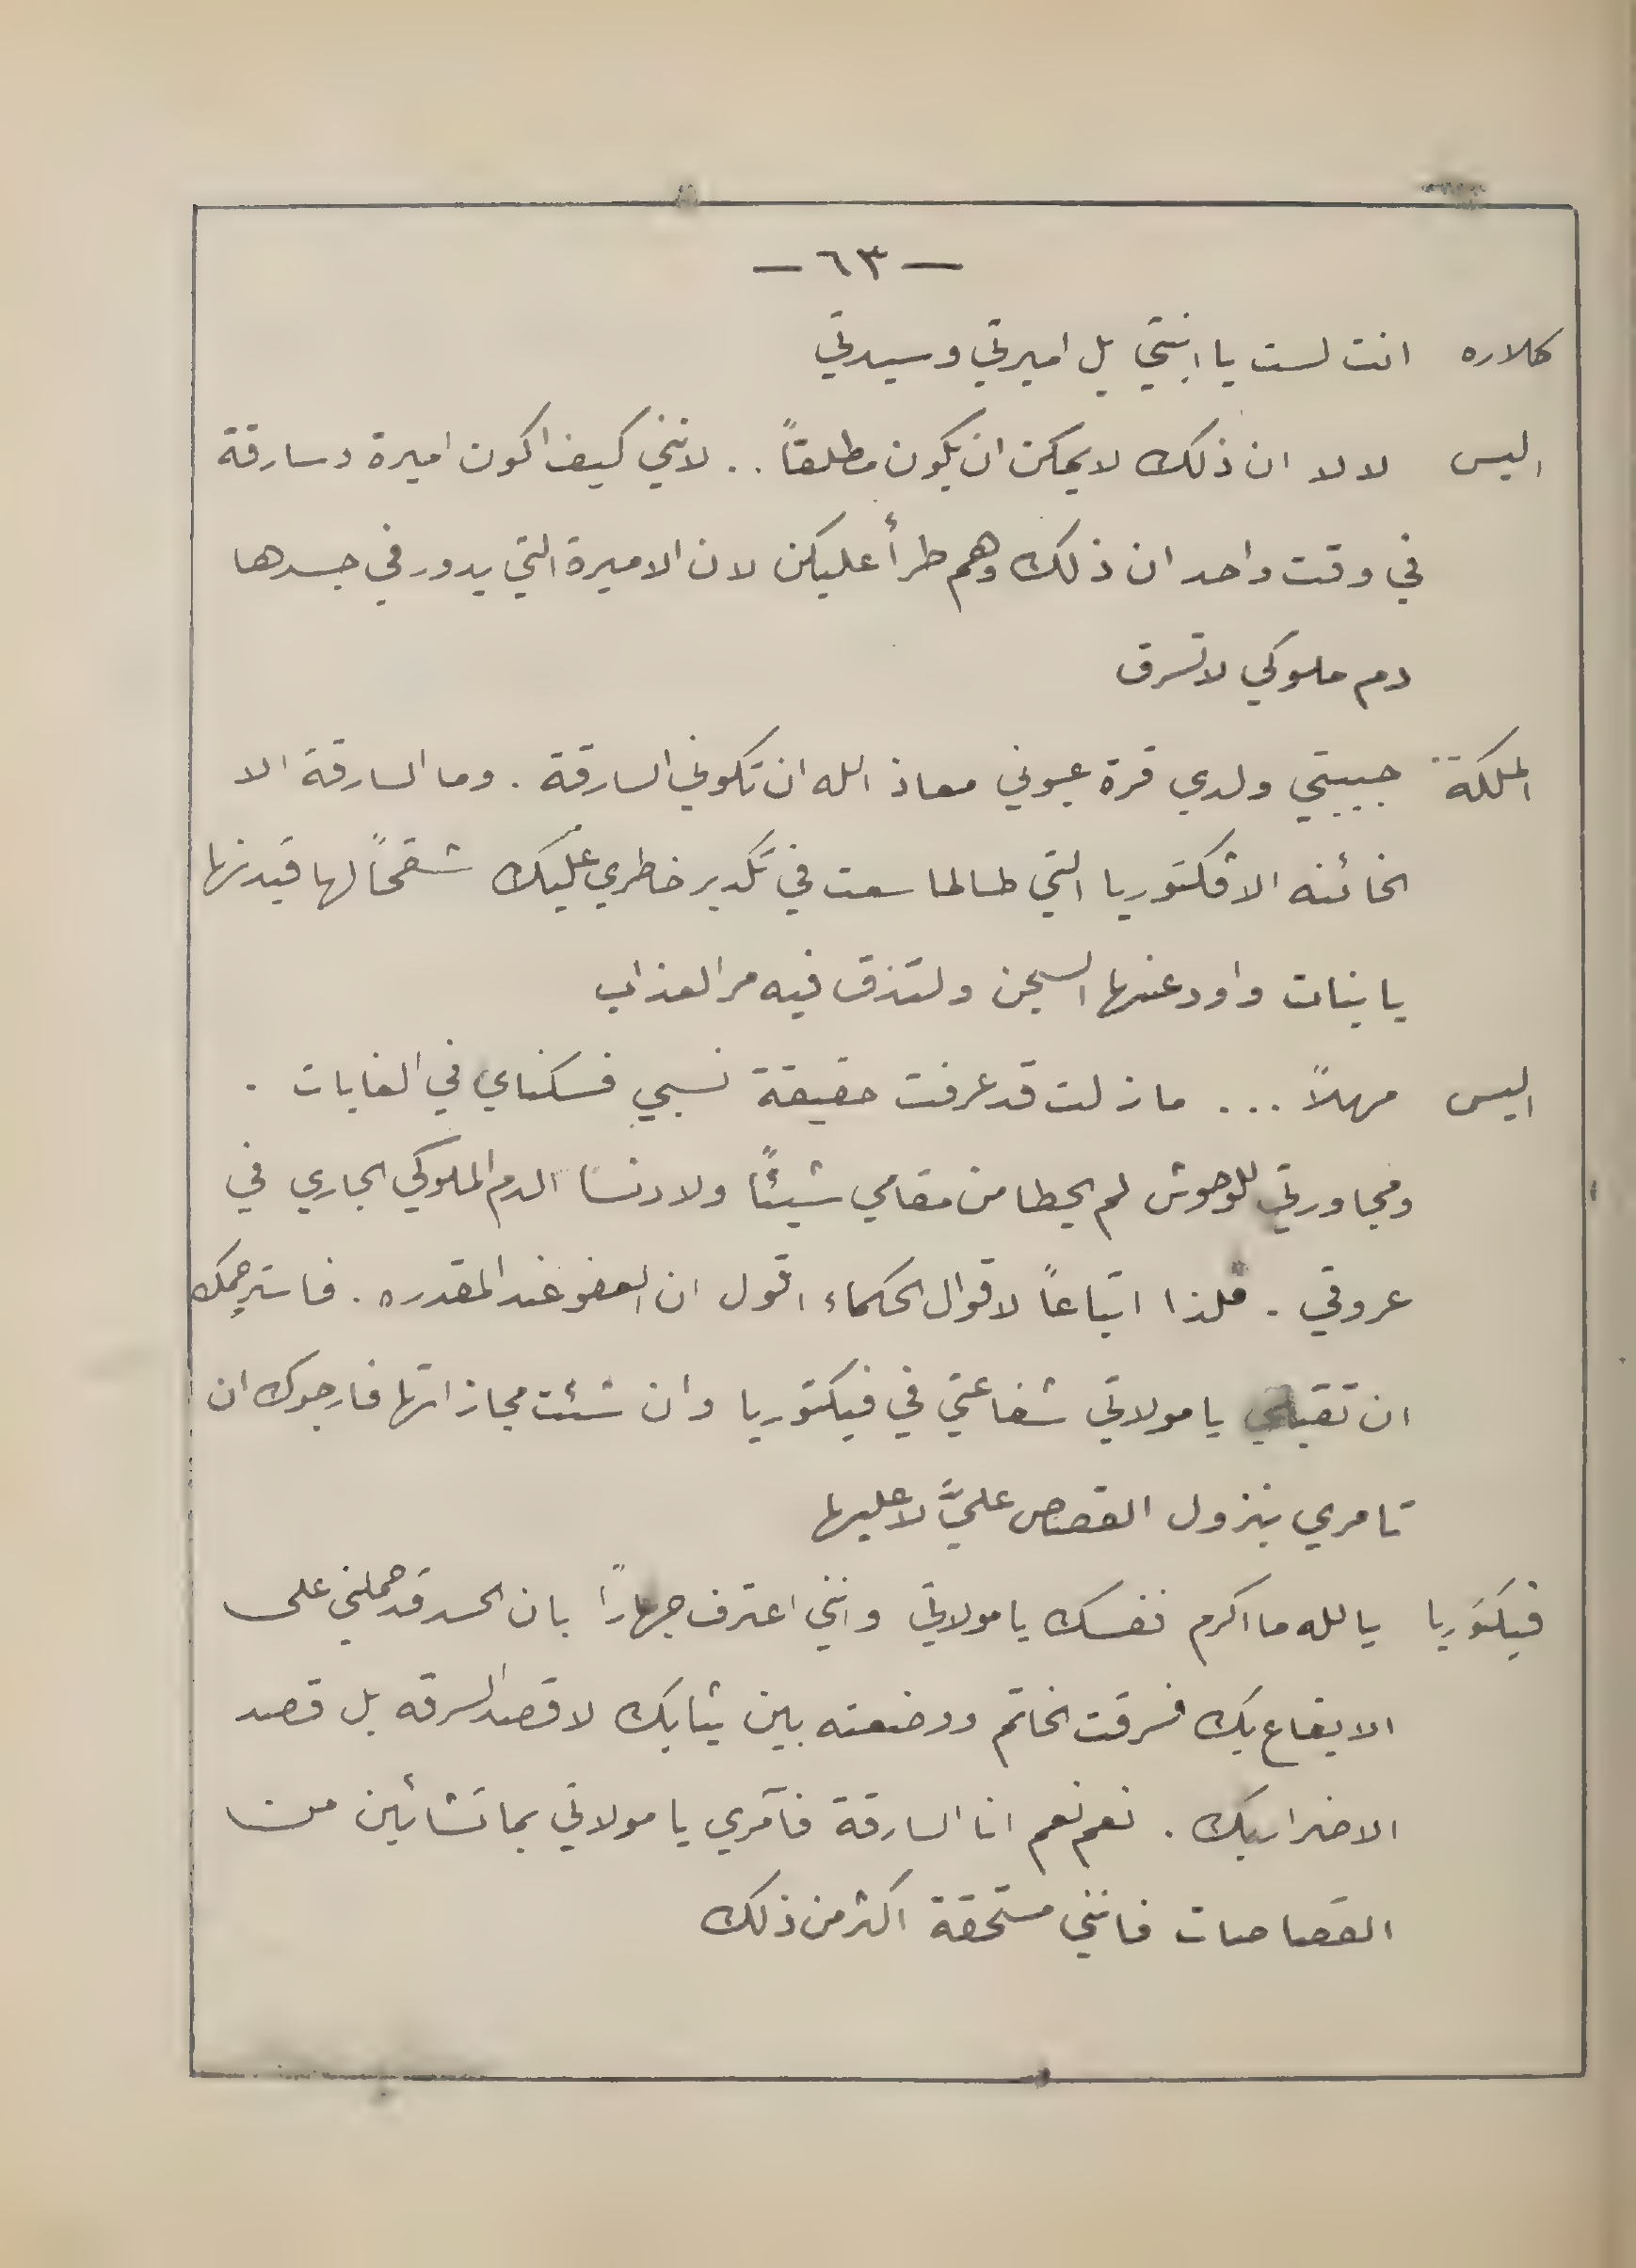 — ٦٣ —
كلاره انت لست يا ابنتي بل اميرتي وسيدتي
اليس لا لا ان ذلك لا يمكن ان يكون مطلقاً .. لانني كيف اكون اميرة وسارقة
في وقت واحد ان ذلك وهم طرأ عليكن لان الاميرة التي يدور في جسدها
دم ملوكي لا تسرق
الملكة حبيبتي ولدي قرة عيوني معاذ الله ان تكوني السارقة . وما السارقة الا
الخائنه الا فكتوريا التي طالما سعت في تكدير خاطري عليك شقحاً لها قيدنها
يا بنات واودعنها السجن ولتذق فيه مر العذاب
اليس مهلاً ... ما زلت قد عرفت حقيقة نسبي فسكناي في الغابات .
ومجاورتي للوحوش لم يحطا من مقامي شيئاً ولا دنسا الدم الملوكي الجاري في
عروقي . فلذا اتباعاً لاقوال الحكماء اقول ان العفو عند المقدره . فاسترحمك
ان تقبلي يا مولاتي شفاعتي في فيكتوريا وان شئت مجازاتها فارجوك ان
تامري بنزول القصاص عليَّ لا عليها
فيكتوريا يالله ما اكرم نفسك يا مولاتي وانني اعترف جهاراً بان الحسد قد حملني على
الايقاع بك فسرقت الخاتم ووضعته بين ثيابك لا قصد السرقه بل قصد
الاضرار بك . نعم نعم انا السارقة فآمري يا مولاتي بما تشائين من
القصاصات فانني مستحقة اكثر من ذلك